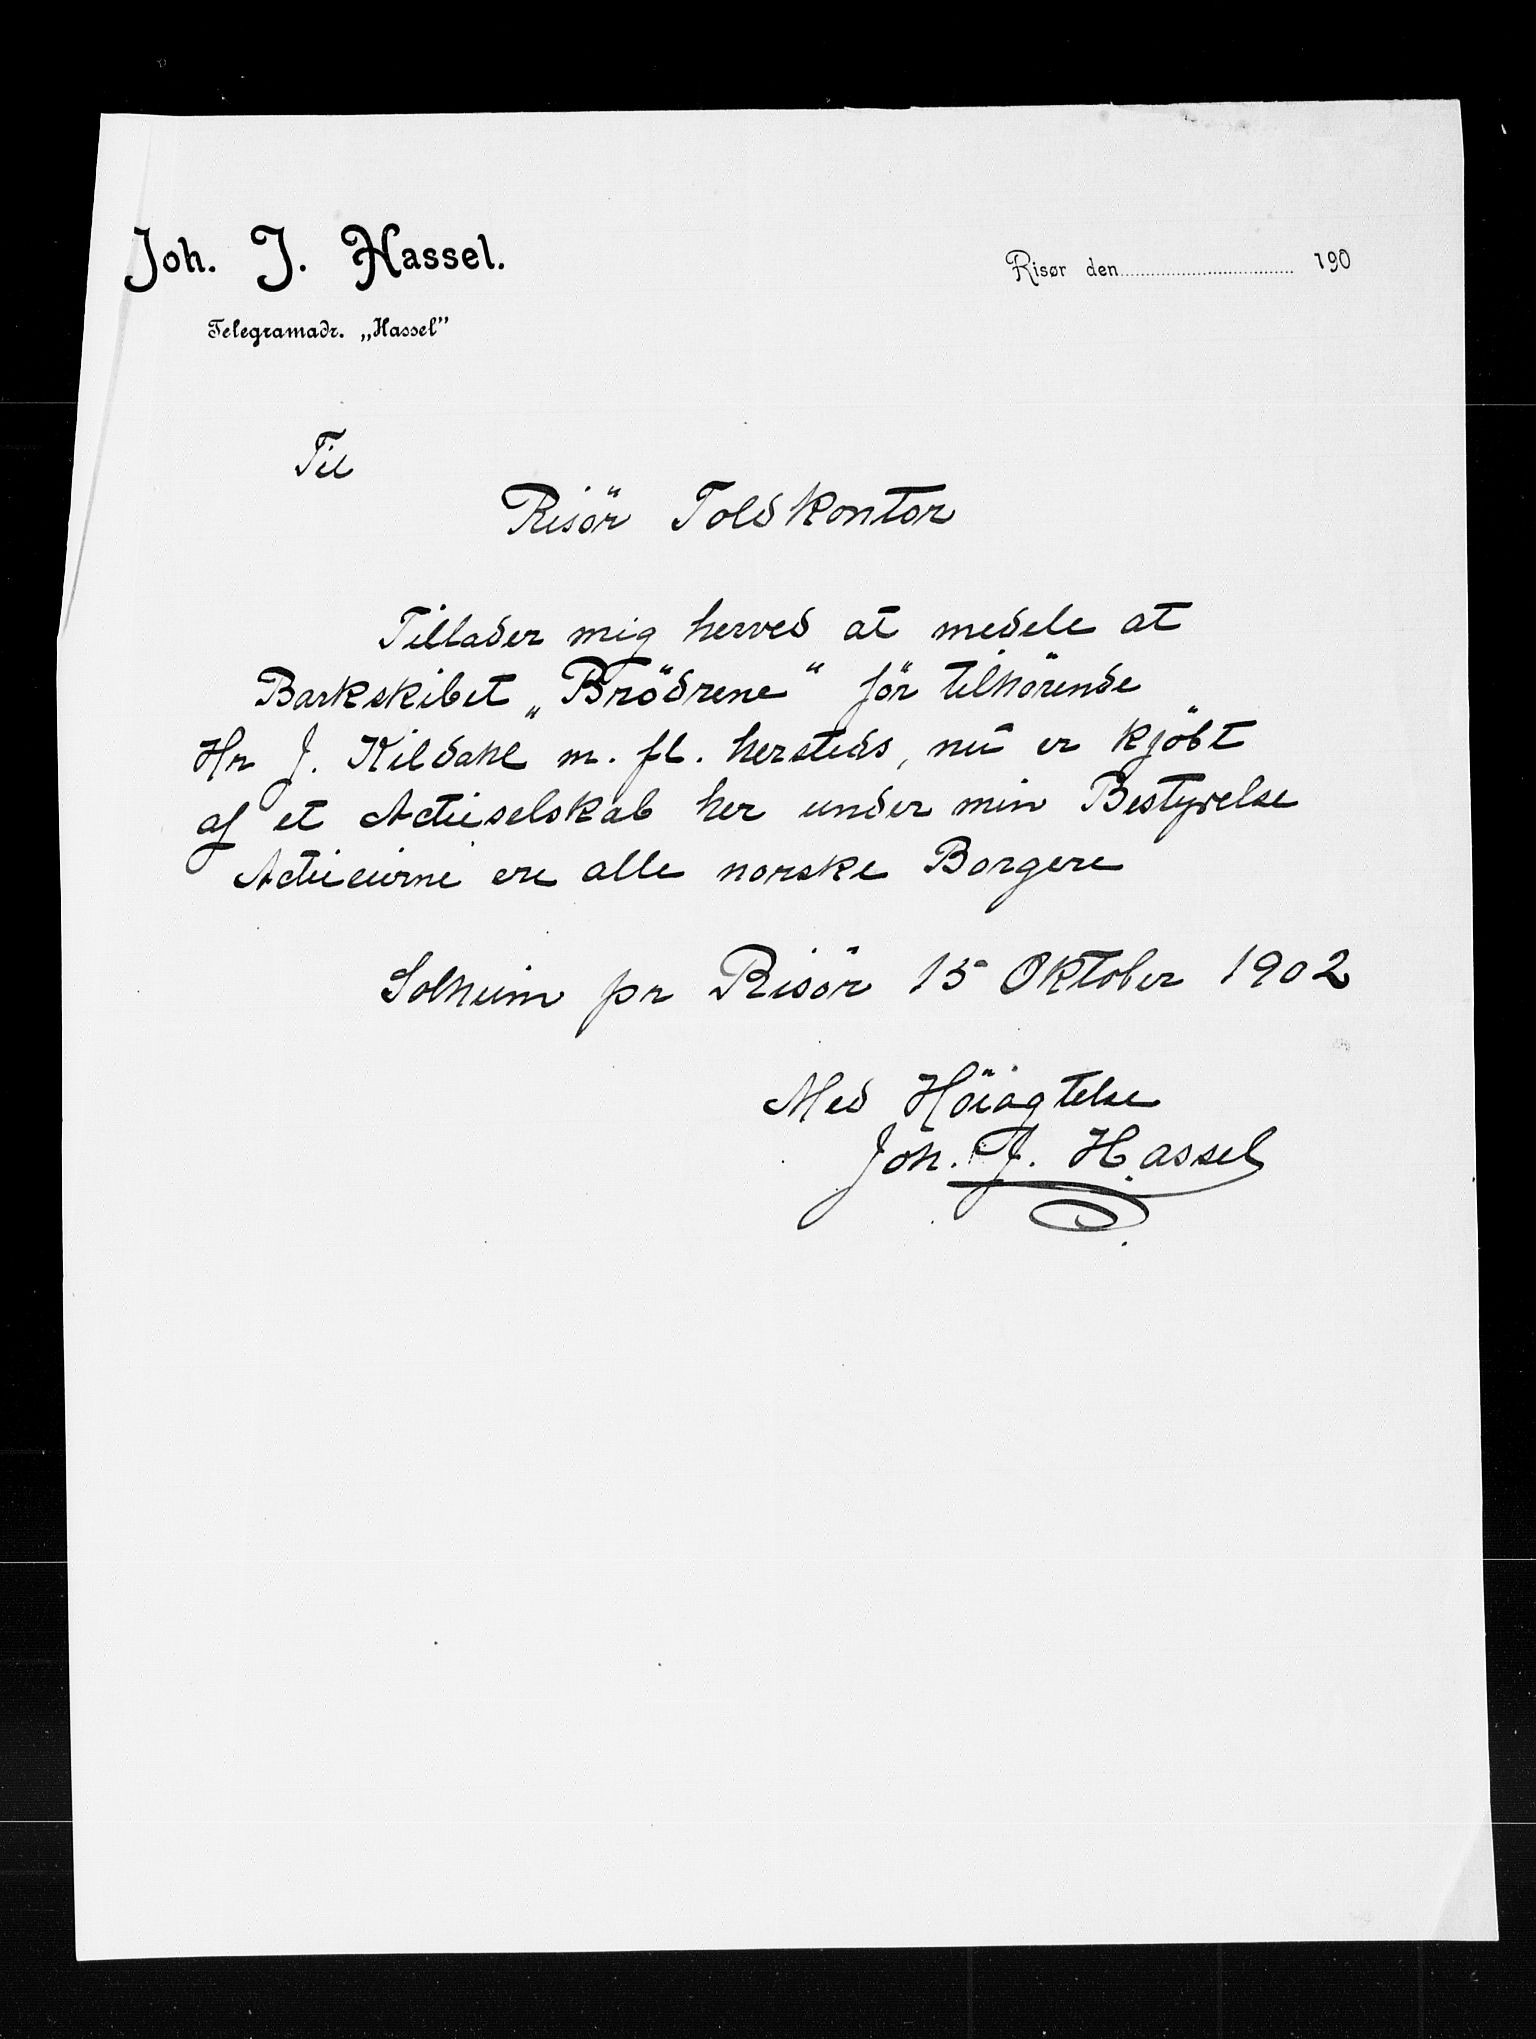 Joh. J. Hassel.
Risør den 190
Telegramadr. „Hassel"
Til
Risör Toldkontor
Tillader mig herved at medele at
Barkskibet „Brödrene" för tilhörende
Hr J. Kildahl m. fl. hersteds, nu er kjöbt
af et Actieselskab her under min Bestyrelse
Actieeierne ere alle norske Borgere
Solheim pr Risör 15 Oktober 1902
Med Höiagtelse
Joh. J. Hassel